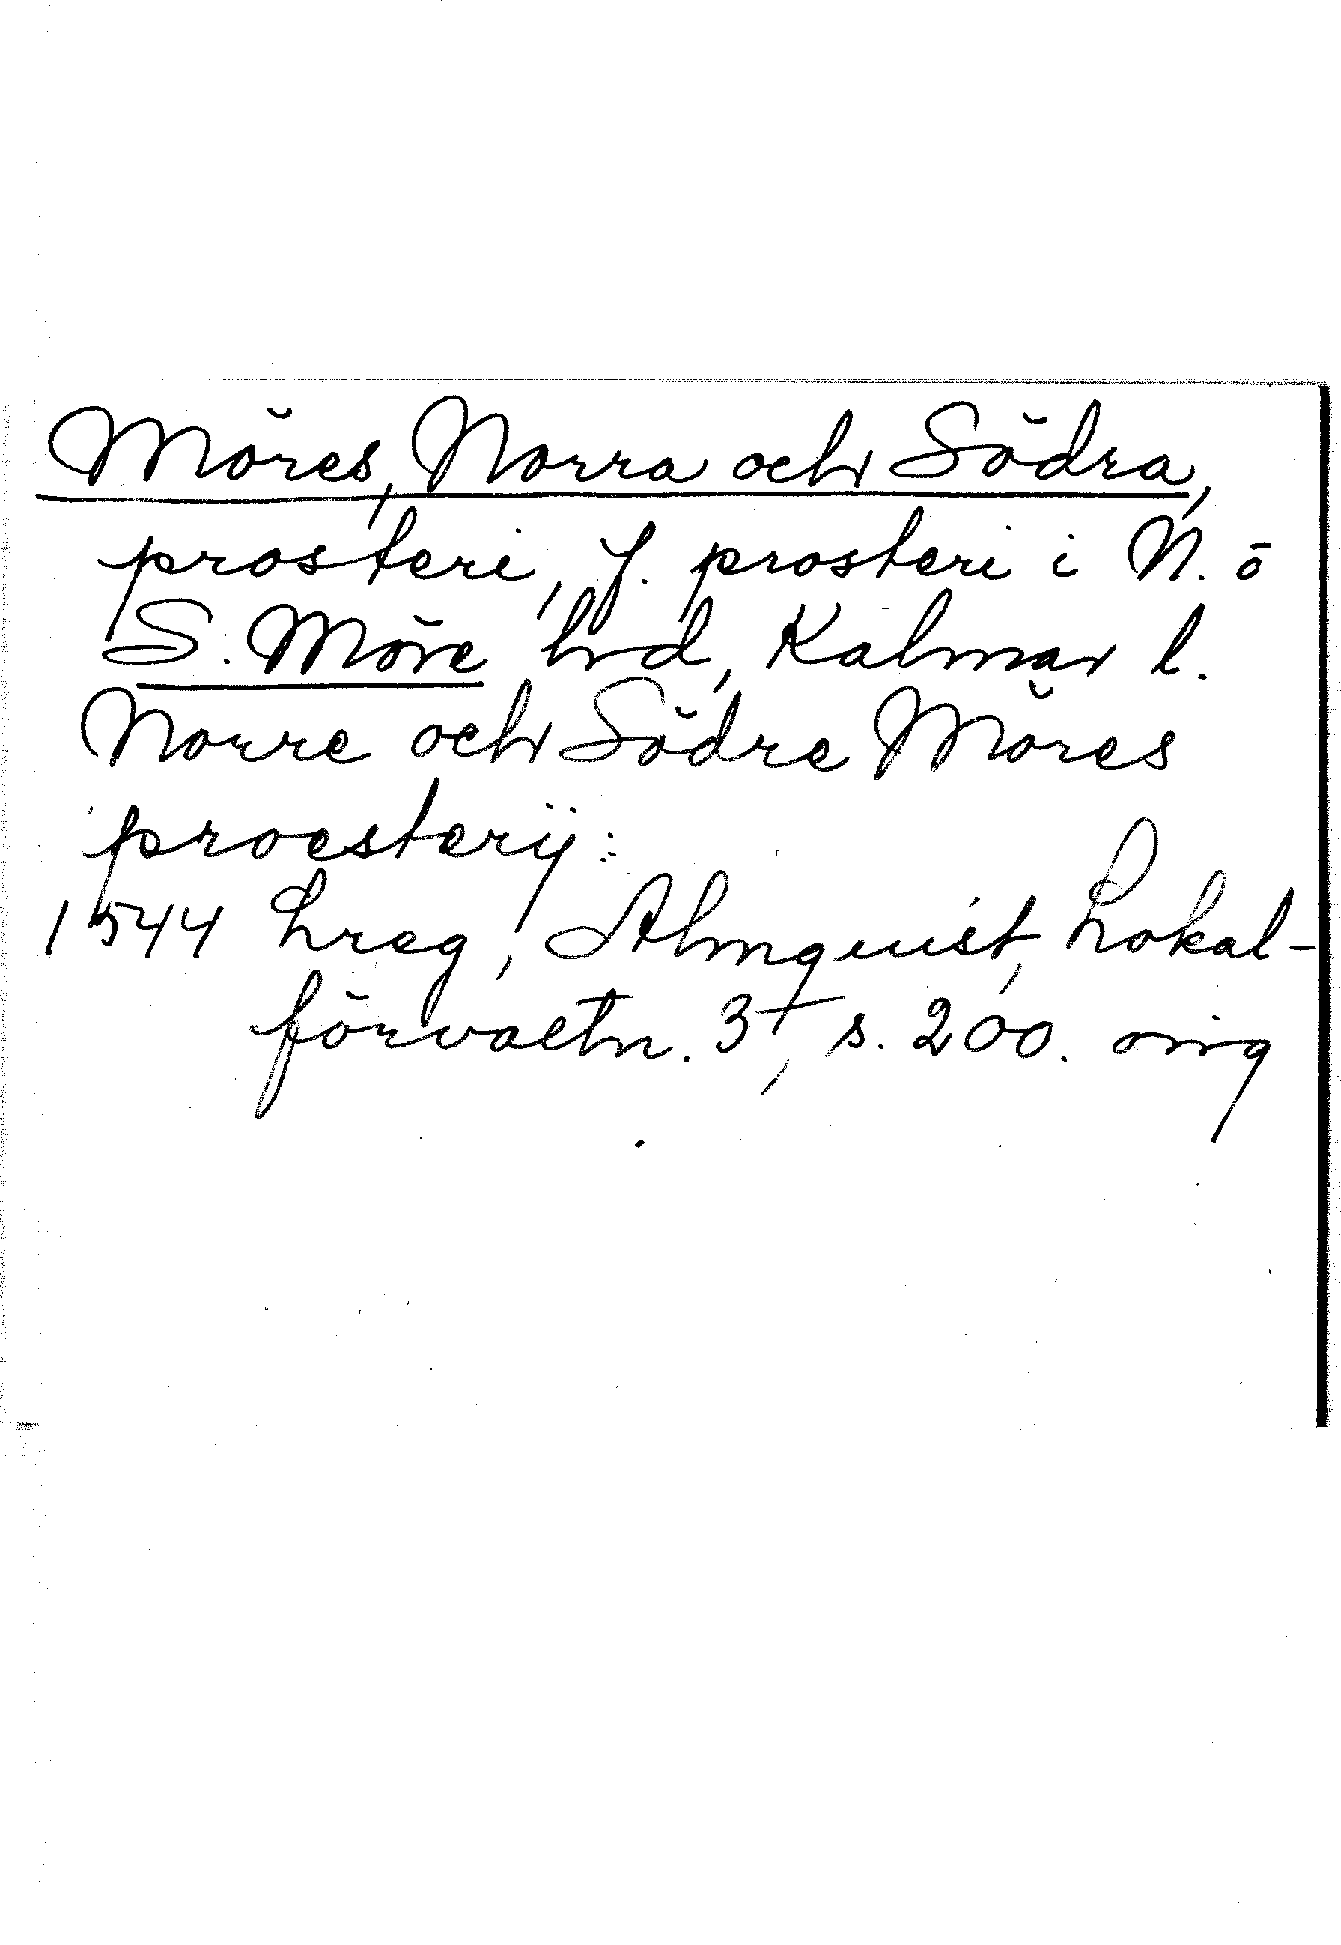 Möres, Norra och Södra,
prosteri, f. prosteri i N. o
S. Möre hrd, Kalmar l.
Norre och Södre Möres
proesterÿ:
1544 Lreg, Almquist, Lokal-
förvaltn. 3, s. 200. orig